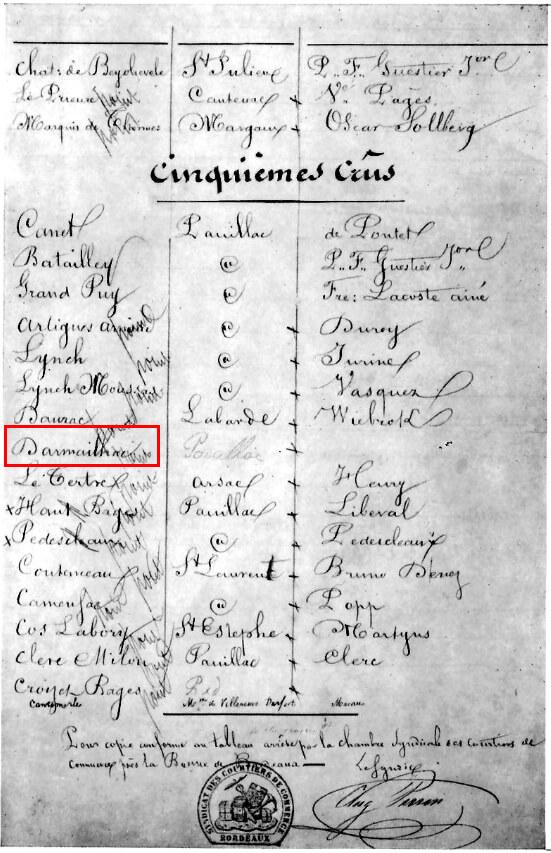 Chat: de Beychevele St Julien P. F. Guestier Jor
Le Prieuré Cantenac Ve Pagès
Marquis de Thermes Margaux Oscar Sollberg
Cinquièmes Crûs
Canet Pauillac de Pontet
Batailley @ P. F. Guestier Jor
Grand Puy @ Fre: Lacoste ainé
Artigues Arnaud @ Duroy
Lynch @ Jurine
Lynch Moussas @ Vasquez
Bauzac Labarde Wiebrok
Darmailhac Pauillac
Le Tertre Arsac Henry
x Haut Bages Pauillac Liberal
x Pedescleaux @ Pedescleaux
Coutenceau St Laurent Bruno Devez
Camensac @ Popp
Cos Labory St Estephe Martyns
Clerc Milon Pauillac Clerc
Croizet Bages
Cantemerle Mme de Villeneuve Durfort Macau
Pour copie conforme au tableau arrêté par la chambre Syndicale des Courtiers de
Commerce près la Bourse de Bordeaux
Le Syndic
SYNDICAT DES COURTIERS DE COMMERCE
BORDEAUX